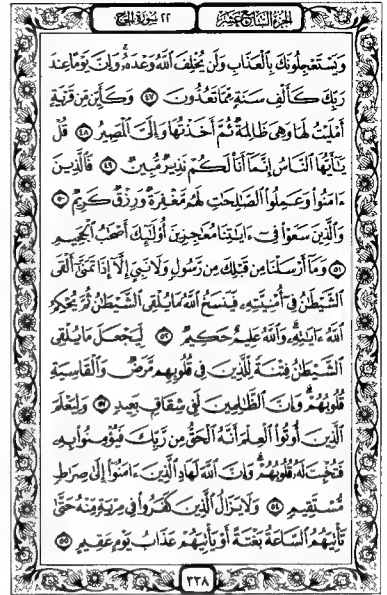 الجزء السابع عشر
٢٢ سورة الحج
وَيَسْتَعْجِلُونَكَ بِالْعَذَابِ وَلَن يُخْلِفَ اللَّهُ وَعْدَهُ ۚ وَإِنَّ يَوْمًا عِندَ
رَبِّكَ كَأَلْفِ سَنَةٍ مِّمَّا تَعُدُّونَ ٤٧ وَكَأَيِّن مِّن قَرْيَةٍ
أَمْلَيْتُ لَهَا وَهِىَ ظَالِمَةٌ ثُمَّ أَخَذْتُهَا وَإِلَىَّ الْمَصِيرُ ٤٨ قُلْ
يَٰٓأَيُّهَا النَّاسُ إِنَّمَآ أَنَا۠ لَكُمْ نَذِيرٌ مُّبِينٌ ٤٩ فَالَّذِينَ
ءَامَنُوا۟ وَعَمِلُوا۟ الصَّٰلِحَٰتِ لَهُم مَّغْفِرَةٌ وَرِزْقٌ كَرِيمٌ ٥٠
وَالَّذِينَ سَعَوْا۟ فِىٓ ءَايَٰتِنَا مُعَٰجِزِينَ أُو۟لَٰٓئِكَ أَصْحَٰبُ الْجَحِيمِ
٥١ وَمَآ أَرْسَلْنَا مِن قَبْلِكَ مِن رَّسُولٍ وَلَا نَبِىٍّ إِلَّآ إِذَا تَمَنَّىٰٓ أَلْقَى
الشَّيْطَٰنُ فِىٓ أُمْنِيَّتِهِۦ فَيَنسَخُ اللَّهُ مَا يُلْقِى الشَّيْطَٰنُ ثُمَّ يُحْكِمُ
اللَّهُ ءَايَٰتِهِۦ ۗ وَاللَّهُ عَلِيمٌ حَكِيمٌ ٥٢ لِّيَجْعَلَ مَا يُلْقِى
الشَّيْطَٰنُ فِتْنَةً لِّلَّذِينَ فِى قُلُوبِهِم مَّرَضٌ وَالْقَاسِيَةِ
قُلُوبُهُمْ ۗ وَإِنَّ الظَّٰلِمِينَ لَفِى شِقَاقٍۭ بَعِيدٍ ٥٣ وَلِيَعْلَمَ
الَّذِينَ أُوتُوا۟ الْعِلْمَ أَنَّهُ الْحَقُّ مِن رَّبِّكَ فَيُؤْمِنُوا۟ بِهِۦ
فَتُخْبِتَ لَهُۥ قُلُوبُهُمْ ۗ وَإِنَّ اللَّهَ لَهَادِ الَّذِينَ ءَامَنُوٓا۟ إِلَىٰ صِرَٰطٍ
مُّسْتَقِيمٍ ٥٤ وَلَا يَزَالُ الَّذِينَ كَفَرُوا۟ فِى مِرْيَةٍ مِّنْهُ حَتَّىٰ
تَأْتِيَهُمُ السَّاعَةُ بَغْتَةً أَوْ يَأْتِيَهُمْ عَذَابُ يَوْمٍ عَقِيمٍ ٥٥
٣٣٨